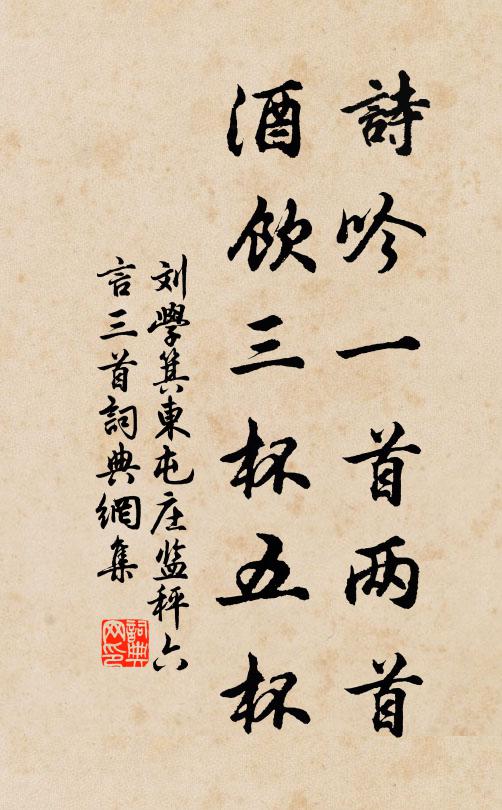 詩吟一首两首
酒飲三杯五杯
刘學箕東屯庄监秤六
言三首詞典網集
詞典
网印